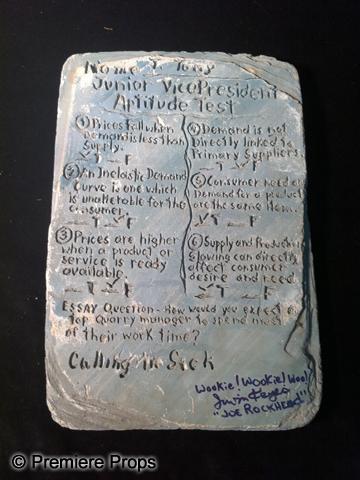 Name: J. Tony
Junior Vice President
Aptitude Test
① Prices fall when
Demand is less than
Supply.
T F
② An Inelastic Demand
Curve is one which
is unalterable for the
consumer.
T F
③ Prices are higher
when a product or
service is ready
available.
T F
④ Demand is not
Directly linked to
Primary Suppliers.
T F
⑤ Consumer need or
Demand for a product
are the same Item.
T F
⑥ Supply and Production
Slowing can directly
affect consumer
desire and need.
T F
ESSAY Question - How would you expect a
top Quarry manager to spend most
of their work time?
Calling In Sick
Wookie! Wookie! Woo!
Irwin Keyes
"JOE ROCKHEAD"
© Premiere Props